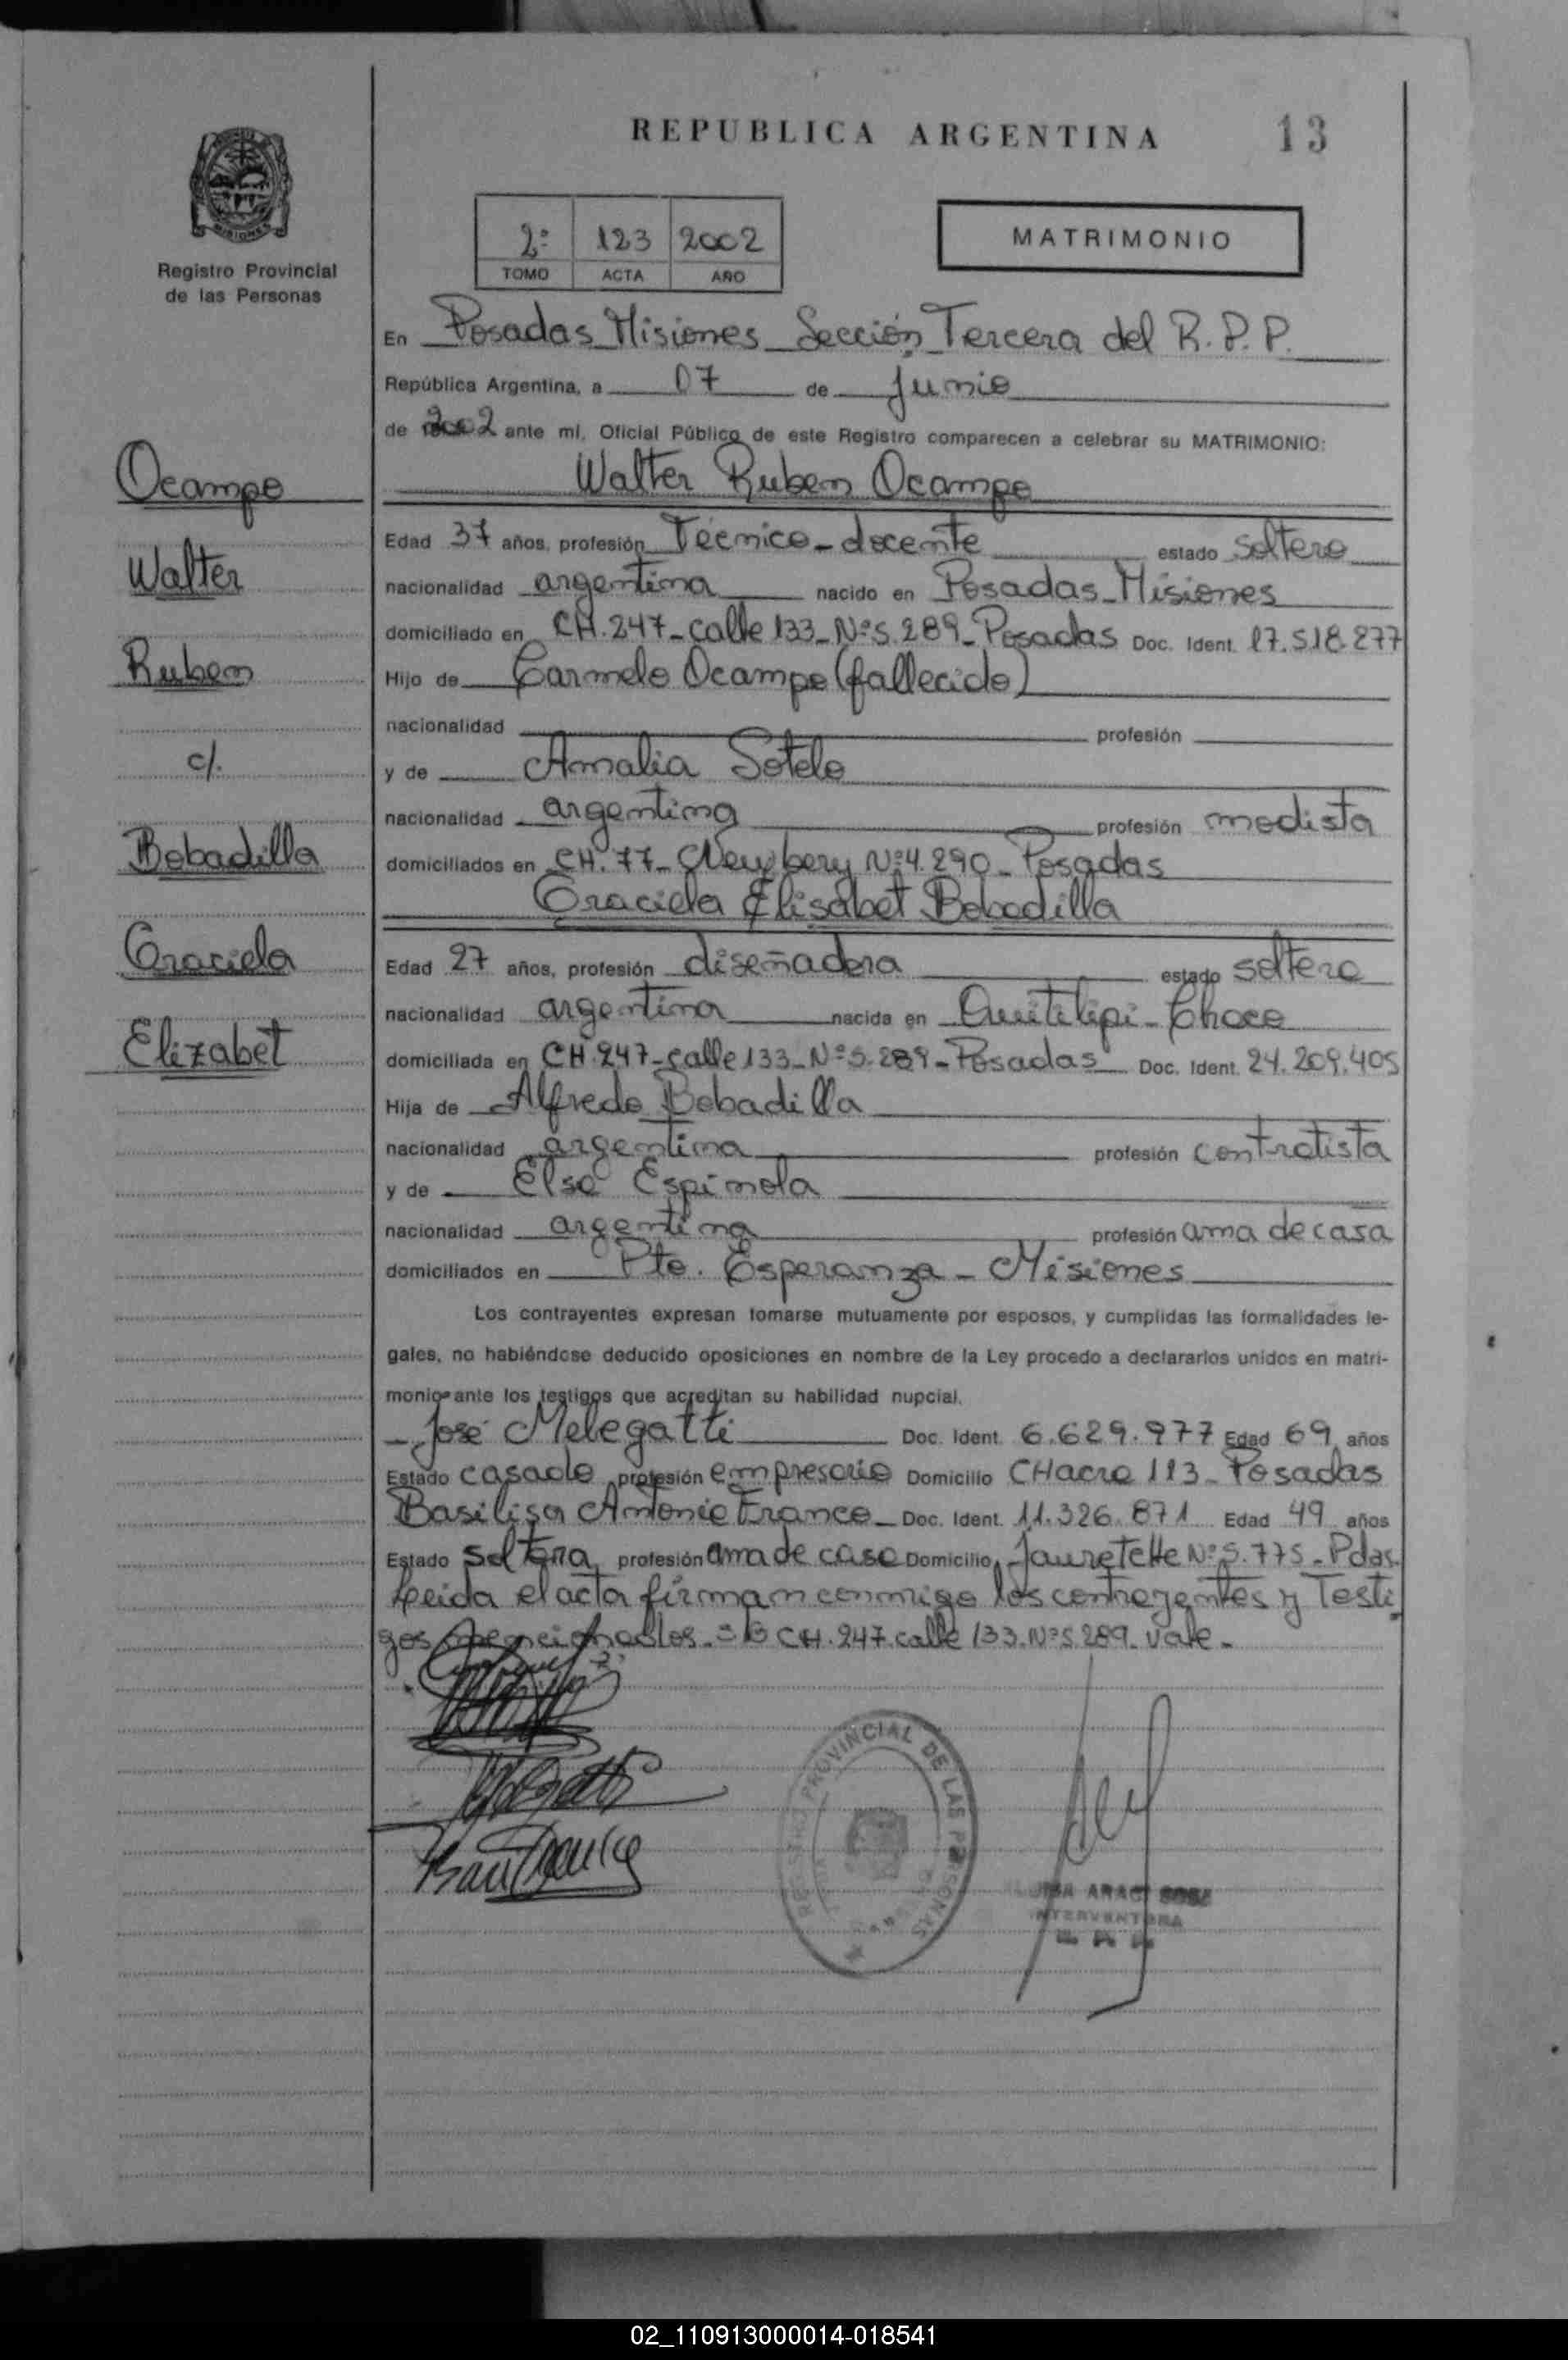 REPUBLICA ARGENTINA 13
MISIONES
Registro Provincial
de las Personas
2º 123 2002
TOMO ACTA AÑO
MATRIMONIO
En Posadas Misiones Sección Tercera del R.P.P.
República Argentina, a 07 de Junio
de 2002 ante mí, Oficial Público de este Registro comparecen a celebrar su MATRIMONIO:
Walter Ruben Ocampo
Ocampo
Walter
Ruben
c/.
Bobadilla
Graciela
Elizabet
Edad 37 años, profesión Técnico-docente estado soltero
nacionalidad argentina nacido en Posadas-Misiones
domiciliado en CH.247-calle 133-Nº5.289-Posadas Doc. Ident. 17.518.277
Hijo de Carmelo Ocampo (fallecido)
nacionalidad profesión
y de Amalia Sotelo
nacionalidad argentina profesión modista
domiciliados en CH.77-Newbery Nº4.290-Posadas
Graciela Elisabet Bobadilla
Edad 27 años, profesión diseñadora estado soltera
nacionalidad argentina nacida en Quitilipi-Chaco
domiciliada en CH.247-calle 133-Nº5.289-Posadas Doc. Ident. 24.209.405
Hija de Alfredo Bobadilla
nacionalidad argentina profesión contratista
y de Elsa Espinola
nacionalidad argentina profesión ama de casa
domiciliados en Pto. Esperanza-Misiones
Los contrayentes expresan tomarse mutuamente por esposos, y cumplidas las formalidades le-
gales, no habiéndose deducido oposiciones en nombre de la Ley procedo a declararlos unidos en matri-
monio ante los testigos que acreditan su habilidad nupcial.
José Melegatti Doc. Ident. 6.629.977 Edad 69 años
Estado casado profesión empresario Domicilio CHacra 113-Posadas
Basilisa Antonia Franco Doc. Ident. 11.326.871 Edad 49 años
Estado soltera profesión ama de casa Domicilio Jauretche Nº5.775-Pdas.
Leida el acta firman conmigo los contrayentes y Testi
gos mencionados.- CH.247 calle 133.Nº5.289.vale.-
REGISTRO PROVINCIAL DE LAS PERSONAS
INTERVENTORA
02_110913000014-018541